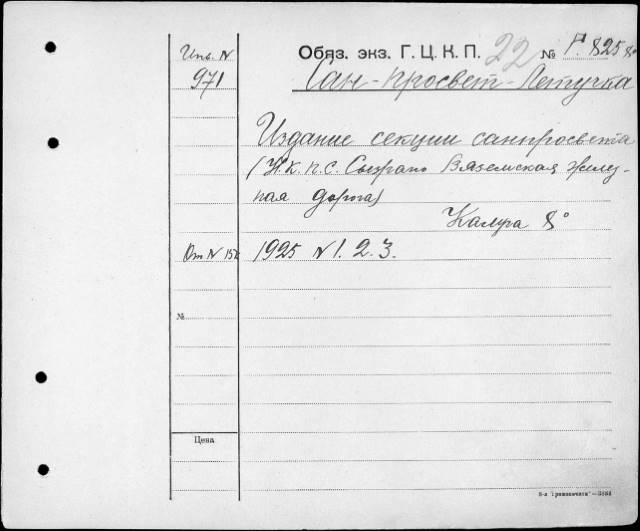 Инв. N
971
Обяз. экз. Г. Ц. К. П. 22 № Г. 825 8°
Сан-просвет-Летучка
Издание секции санпросвета
(Н.К.П.С. Сызрано Вяземская желез-
ная дорога)
Калуга 8°
От N 152 1925 N 1. 2. 3.
№
Цена